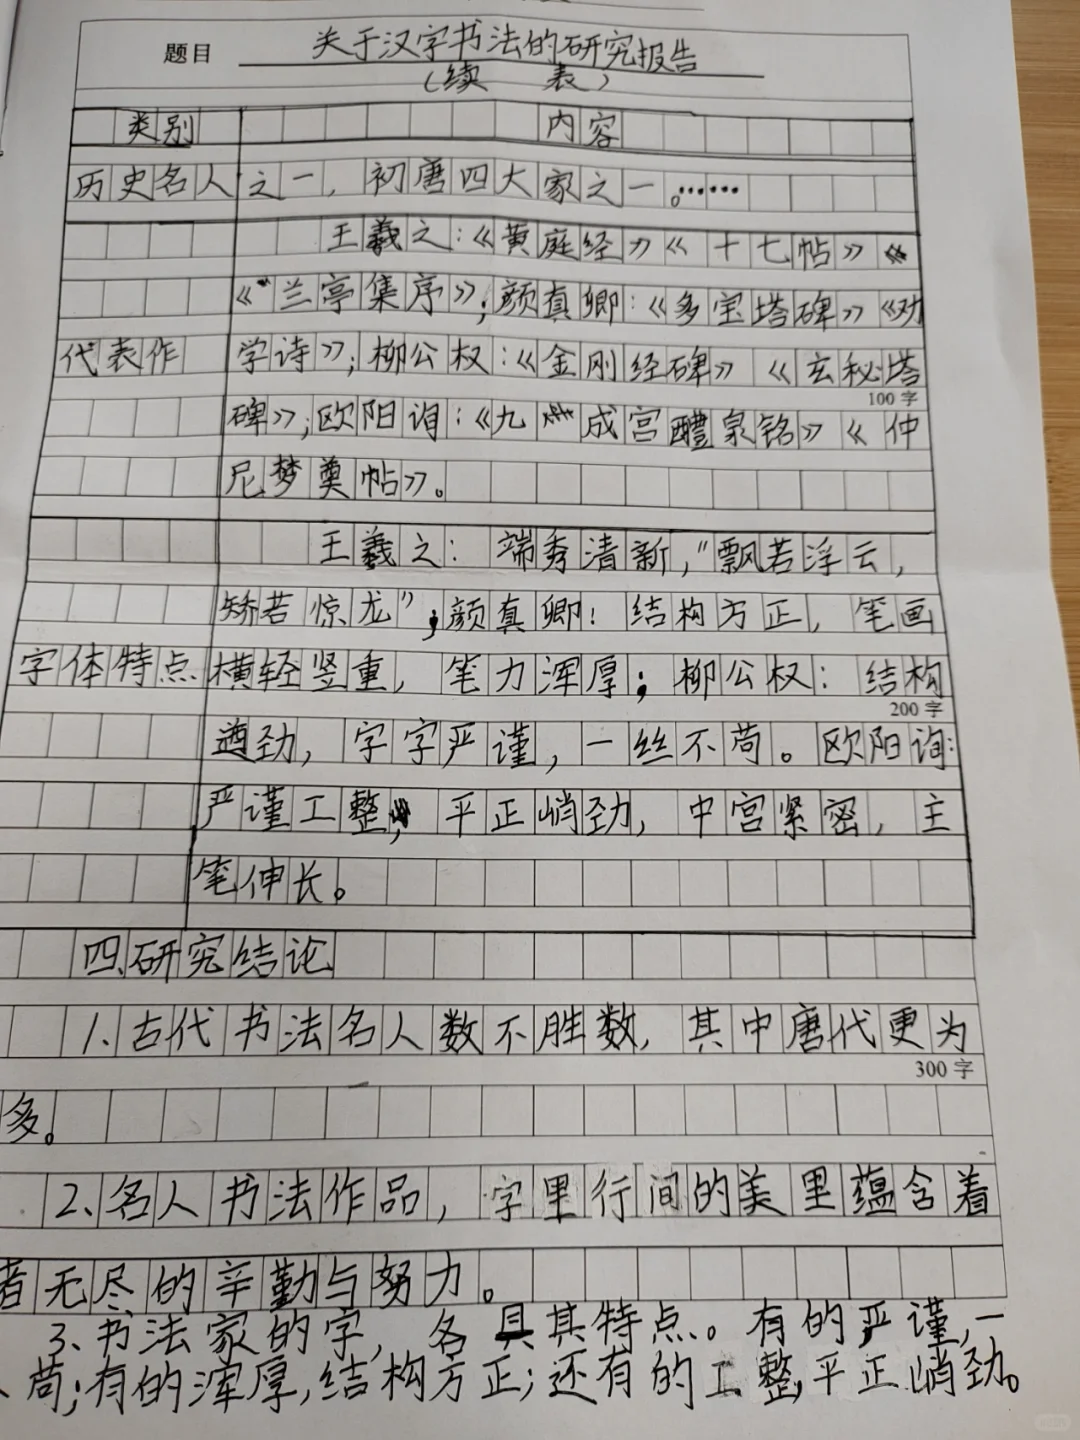 题目 关于汉字书法的研究报告
（续 表）
类别 内容
历史名人 之一，初唐四大家之一。……
王羲之：《黄庭经》《十七帖》
《兰亭集序》；颜真卿：《多宝塔碑》《劝
代表作 学诗》；柳公权：《金刚经碑》《玄秘塔
100字
碑》；欧阳询：《九成宫醴泉铭》《仲
尼梦奠帖》。
王羲之：端秀清新，“飘若浮云，
矫若惊龙”；颜真卿：结构方正，笔画
字体特点 横轻竖重，笔力浑厚；柳公权：结构
200字
遒劲，字字严谨，一丝不苟。欧阳询：
严谨工整，平正峭劲，中宫紧密，主
笔伸长。
四、研究结论
1、古代书法名人数不胜数，其中唐代更为
300字
多。
2、名人书法作品，字里行间的美里蕴含着
者无尽的辛勤与努力。
3、书法家的字，各具其特点。有的严谨，一
苟；有的浑厚，结构方正；还有的工整，平正峭劲。